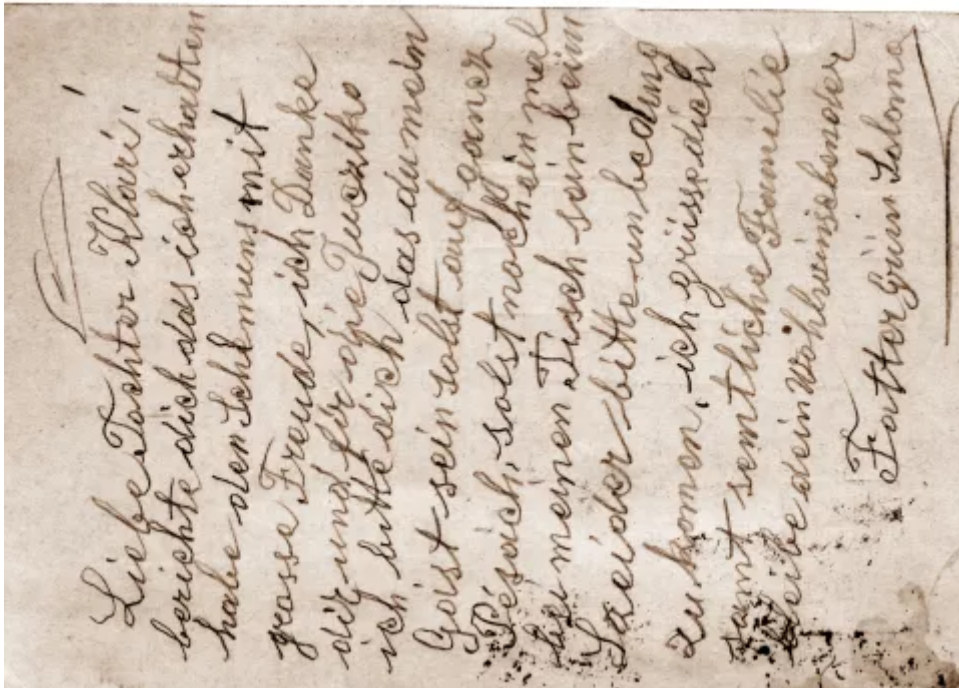 Liebe Tochter Klári!
berichte dich das ich erhalten
habe den Schkmuns mit
grosse Freude, ich Danke
dir und für die Jueziko
ich bitte dich das du mein
Gast sein solst auf ganz
Pésách, solst noch ein mal
bei meinen Tisch sein beim
Szeider bitte unbedung
zu komen. ich grüsse dich
samt semtliche Familie
bleibe dein Wohlwünschender
Fatter Grün Salomo